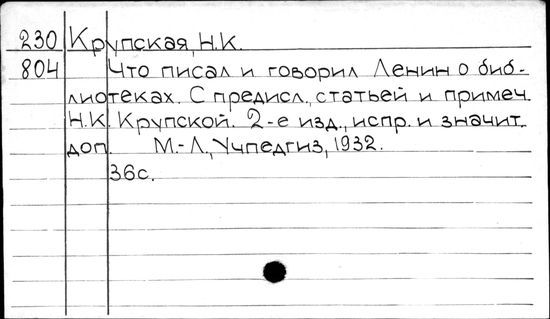 230 Крупская, Н.К.
804 Что писал и говорил Ленин о биб-
лиотеках. С предисл., статьей и примеч.
Н.К. Крупской. 2-е изд., испр. и значит.
доп. М.-Л., Учпедгиз, 1932.
36с.